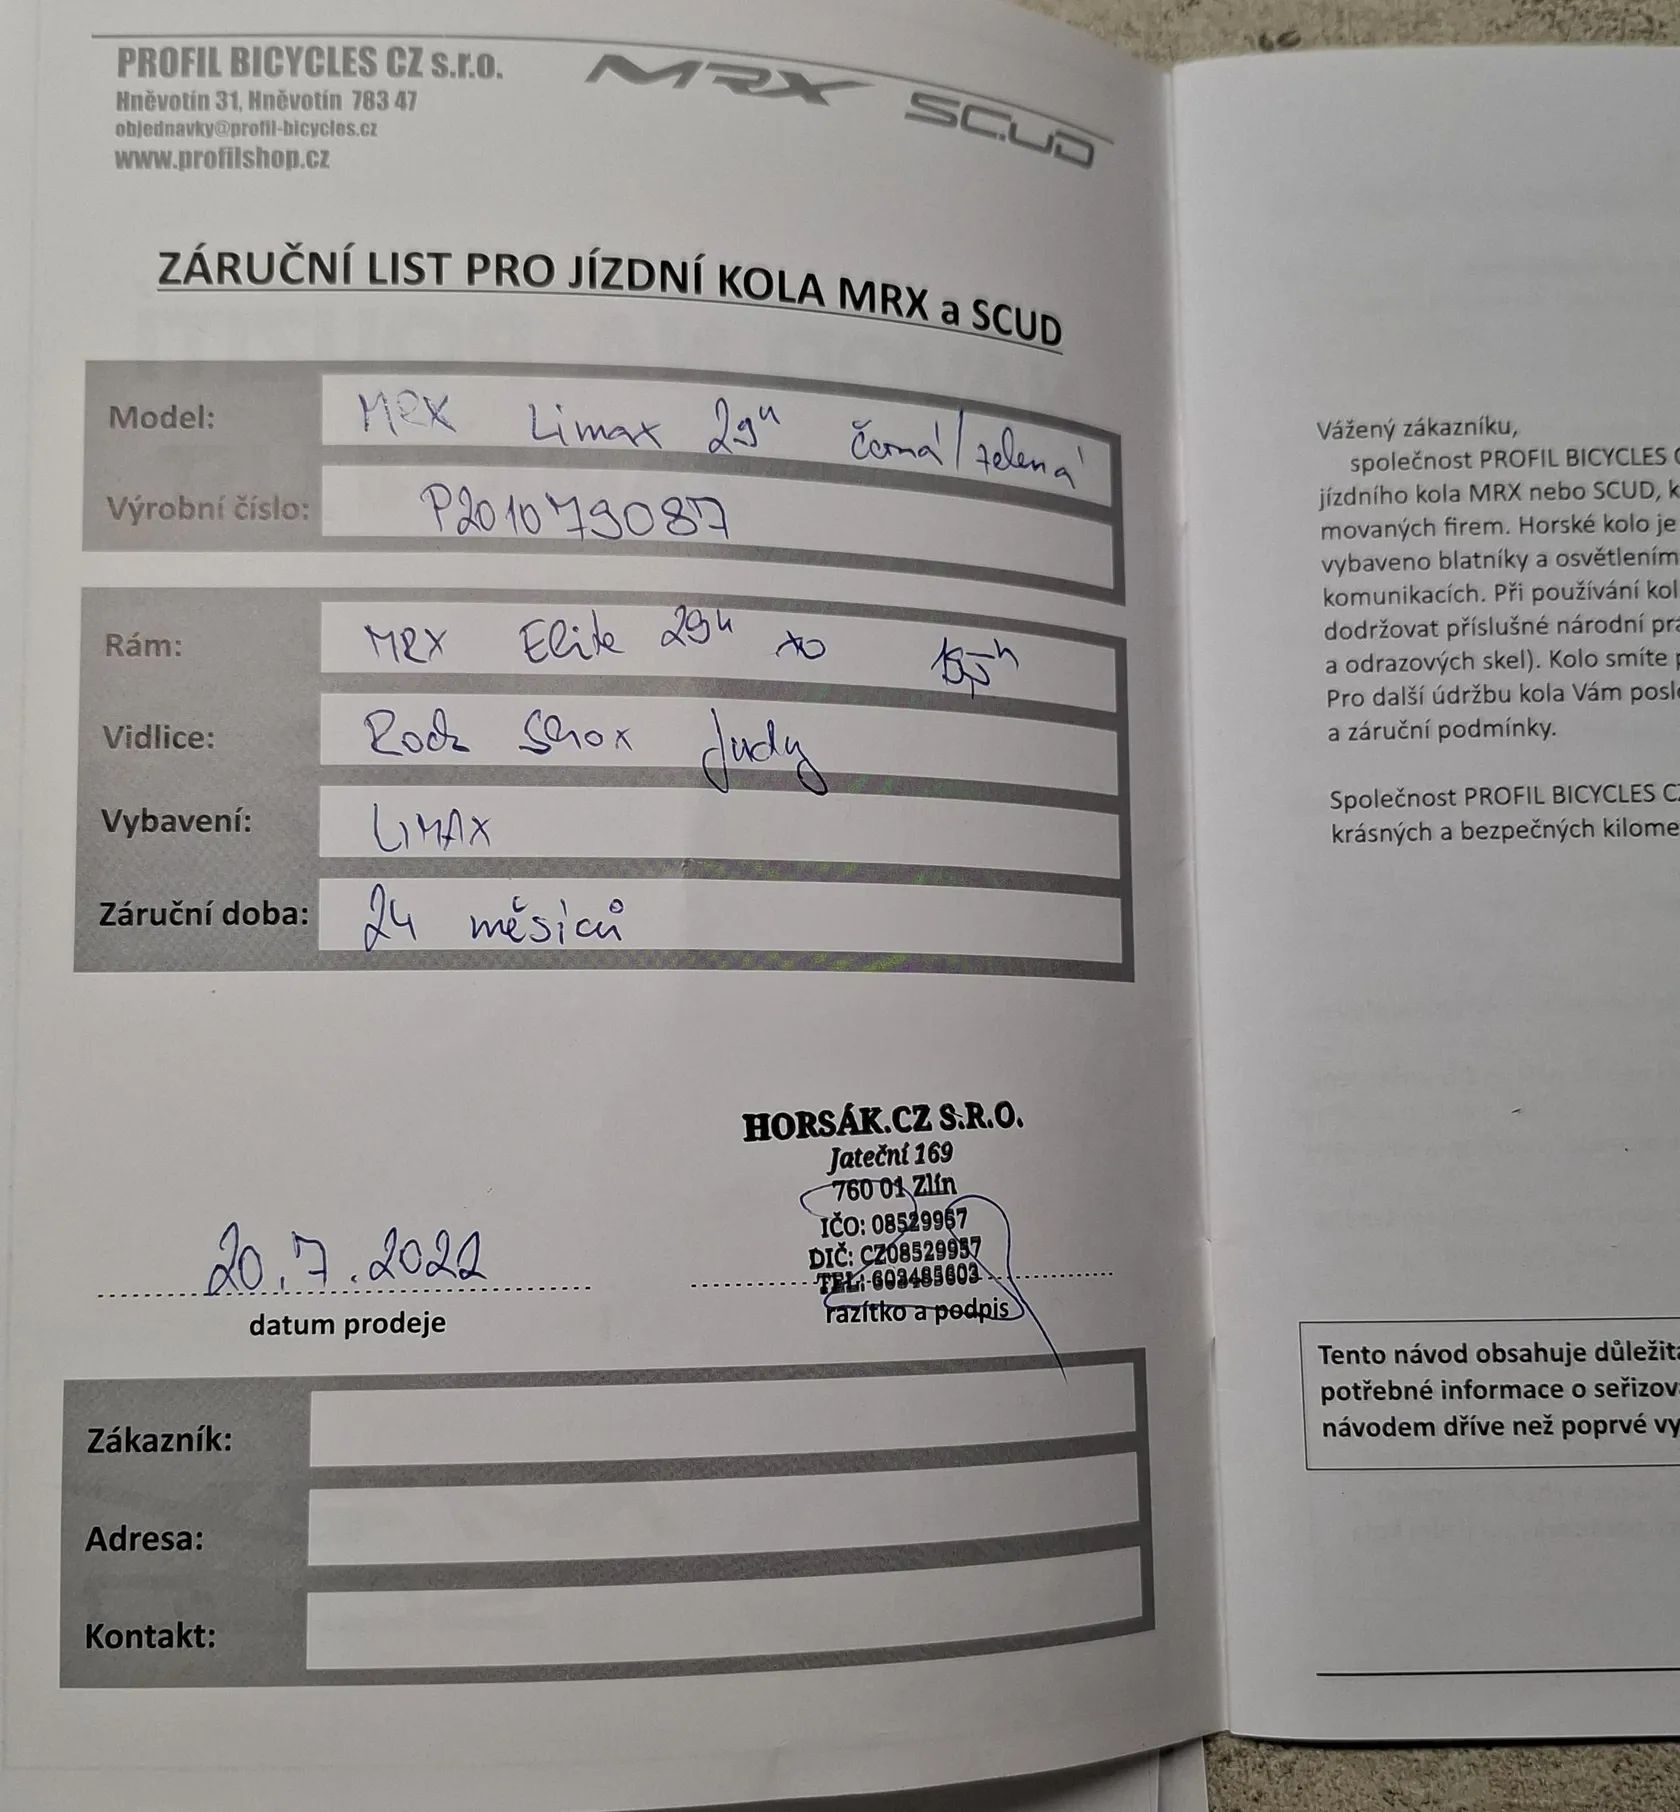 PROFIL BICYCLES CZ s.r.o.
Hněvotín 31, Hněvotín 783 47
objednavky@profil-bicycles.cz
www.profilshop.cz
MRX SCUD
ZÁRUČNÍ LIST PRO JÍZDNÍ KOLA MRX a SCUD
Model: MRX Limax 29" černá/zelená
Výrobní číslo: P201079087
Rám: MRX Elite 29"
Vidlice: Rock Shox Judy
Vybavení: LIMAX
Záruční doba: 24 měsíců
HORSÁK.CZ S.R.O.
Jateční 169
760 01 Zlín
IČO: 08529967
DIČ: CZ08529957
TEL: 603485603
20.7.2022
datum prodeje
razítko a podpis
Zákazník:
Adresa:
Kontakt:
Vážený zákazníku,
společnost PROFIL BICYCLES
jízdního kola MRX nebo SCUD, k
movaných firem. Horské kolo je
vybaveno blatníky a osvětlením
komunikacích. Při používání kol
dodržovat příslušné národní prá
a odrazových skel). Kolo smíte p
Pro další údržbu kola Vám posl
a záruční podmínky.
Společnost PROFIL BICYCLES C
krásných a bezpečných kilome
Tento návod obsahuje důležit
potřebné informace o seřizov
návodem dříve než poprvé vy